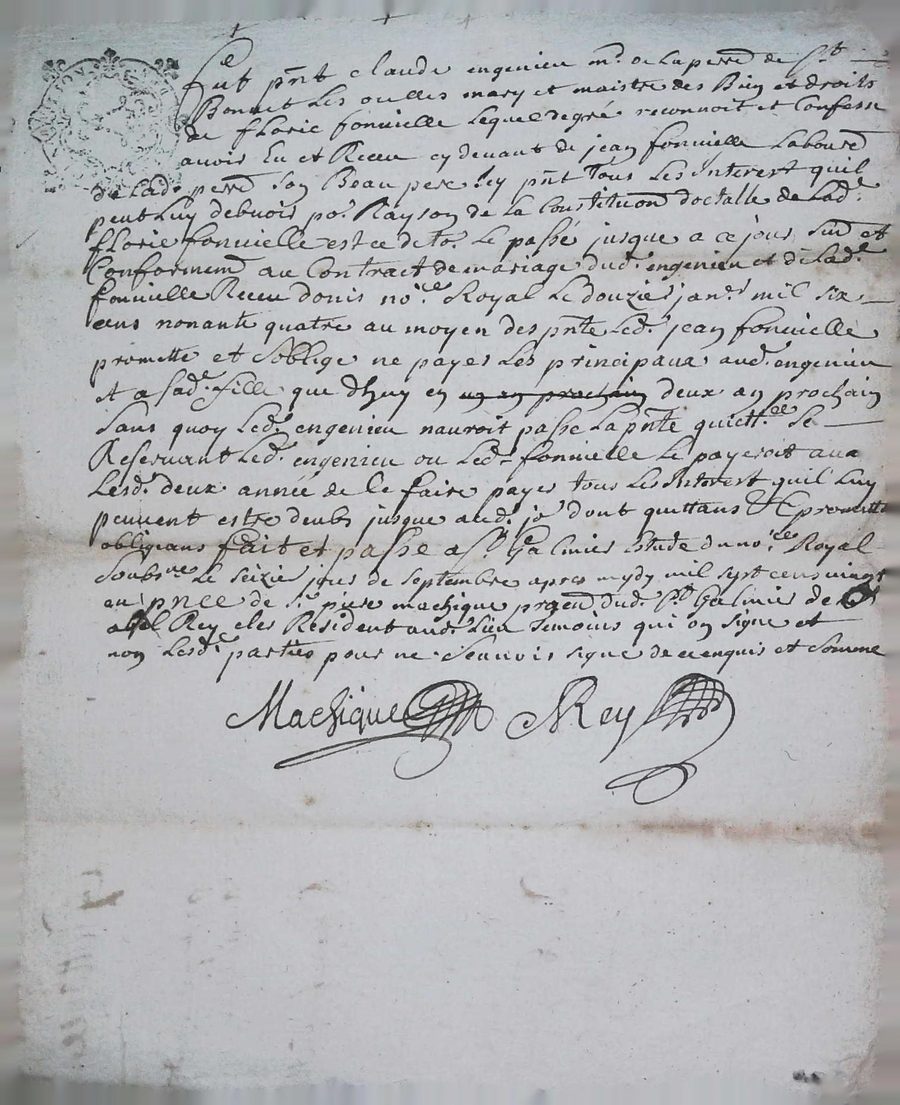 Fut pñt claude engenieu m.d de la peroē de S.t
Bonnet Les oulles mary et maistre des Bien et droits
de florie fonvielle Lequel de gré reconnoit et Confesse
avoir Eu et Receu cy devant de jean fonvielle Laboure
de Lad. peroē Son Beau pere icy pñt Tous Les Interest quil
peut Luy debvoir po.r Rayson de La Constitution doctalle de Lad.e
florie fonvielle est ce de to.t Le passé jusque a ce jour
Conformem̄ au Contract de mariage dud. engenieu et de Lad.e
fonvielle Receu donis no.re Royal Le douzie jan.r mil six
cens nonante quatre au moyen des pñte Led. jean fonvielle
promette et Soblige ne payer Les principaux aud. engenieu
et a Sad.e fille que dhuy en un an prochain deux an prochain
Sans quoy Led. engenieu nauroit passe La pñte quictt.ce Se
Reservant Led. engenieu ou Led. fonvielle Le payeroit aux
Lesd. deux année de Le faire payer tous Les Interest quil Luy
peuvent estre deubs jusque aud. jo.r dont quittans &c promette
obligeans fait et passe a S.t Galmier Estude du no.re Royal
Soubs.ne Le Seizie jour de Septembre apres mydy mil sept cens vingt
en pñce de S.r piere machique prācū dud. S.t Galmier
Rey cler Resident aud. Lieu Temoins qui on signe et
non Lesd. parties pour ne Scavoir signe de ce enquis et Somme
Machique Rey